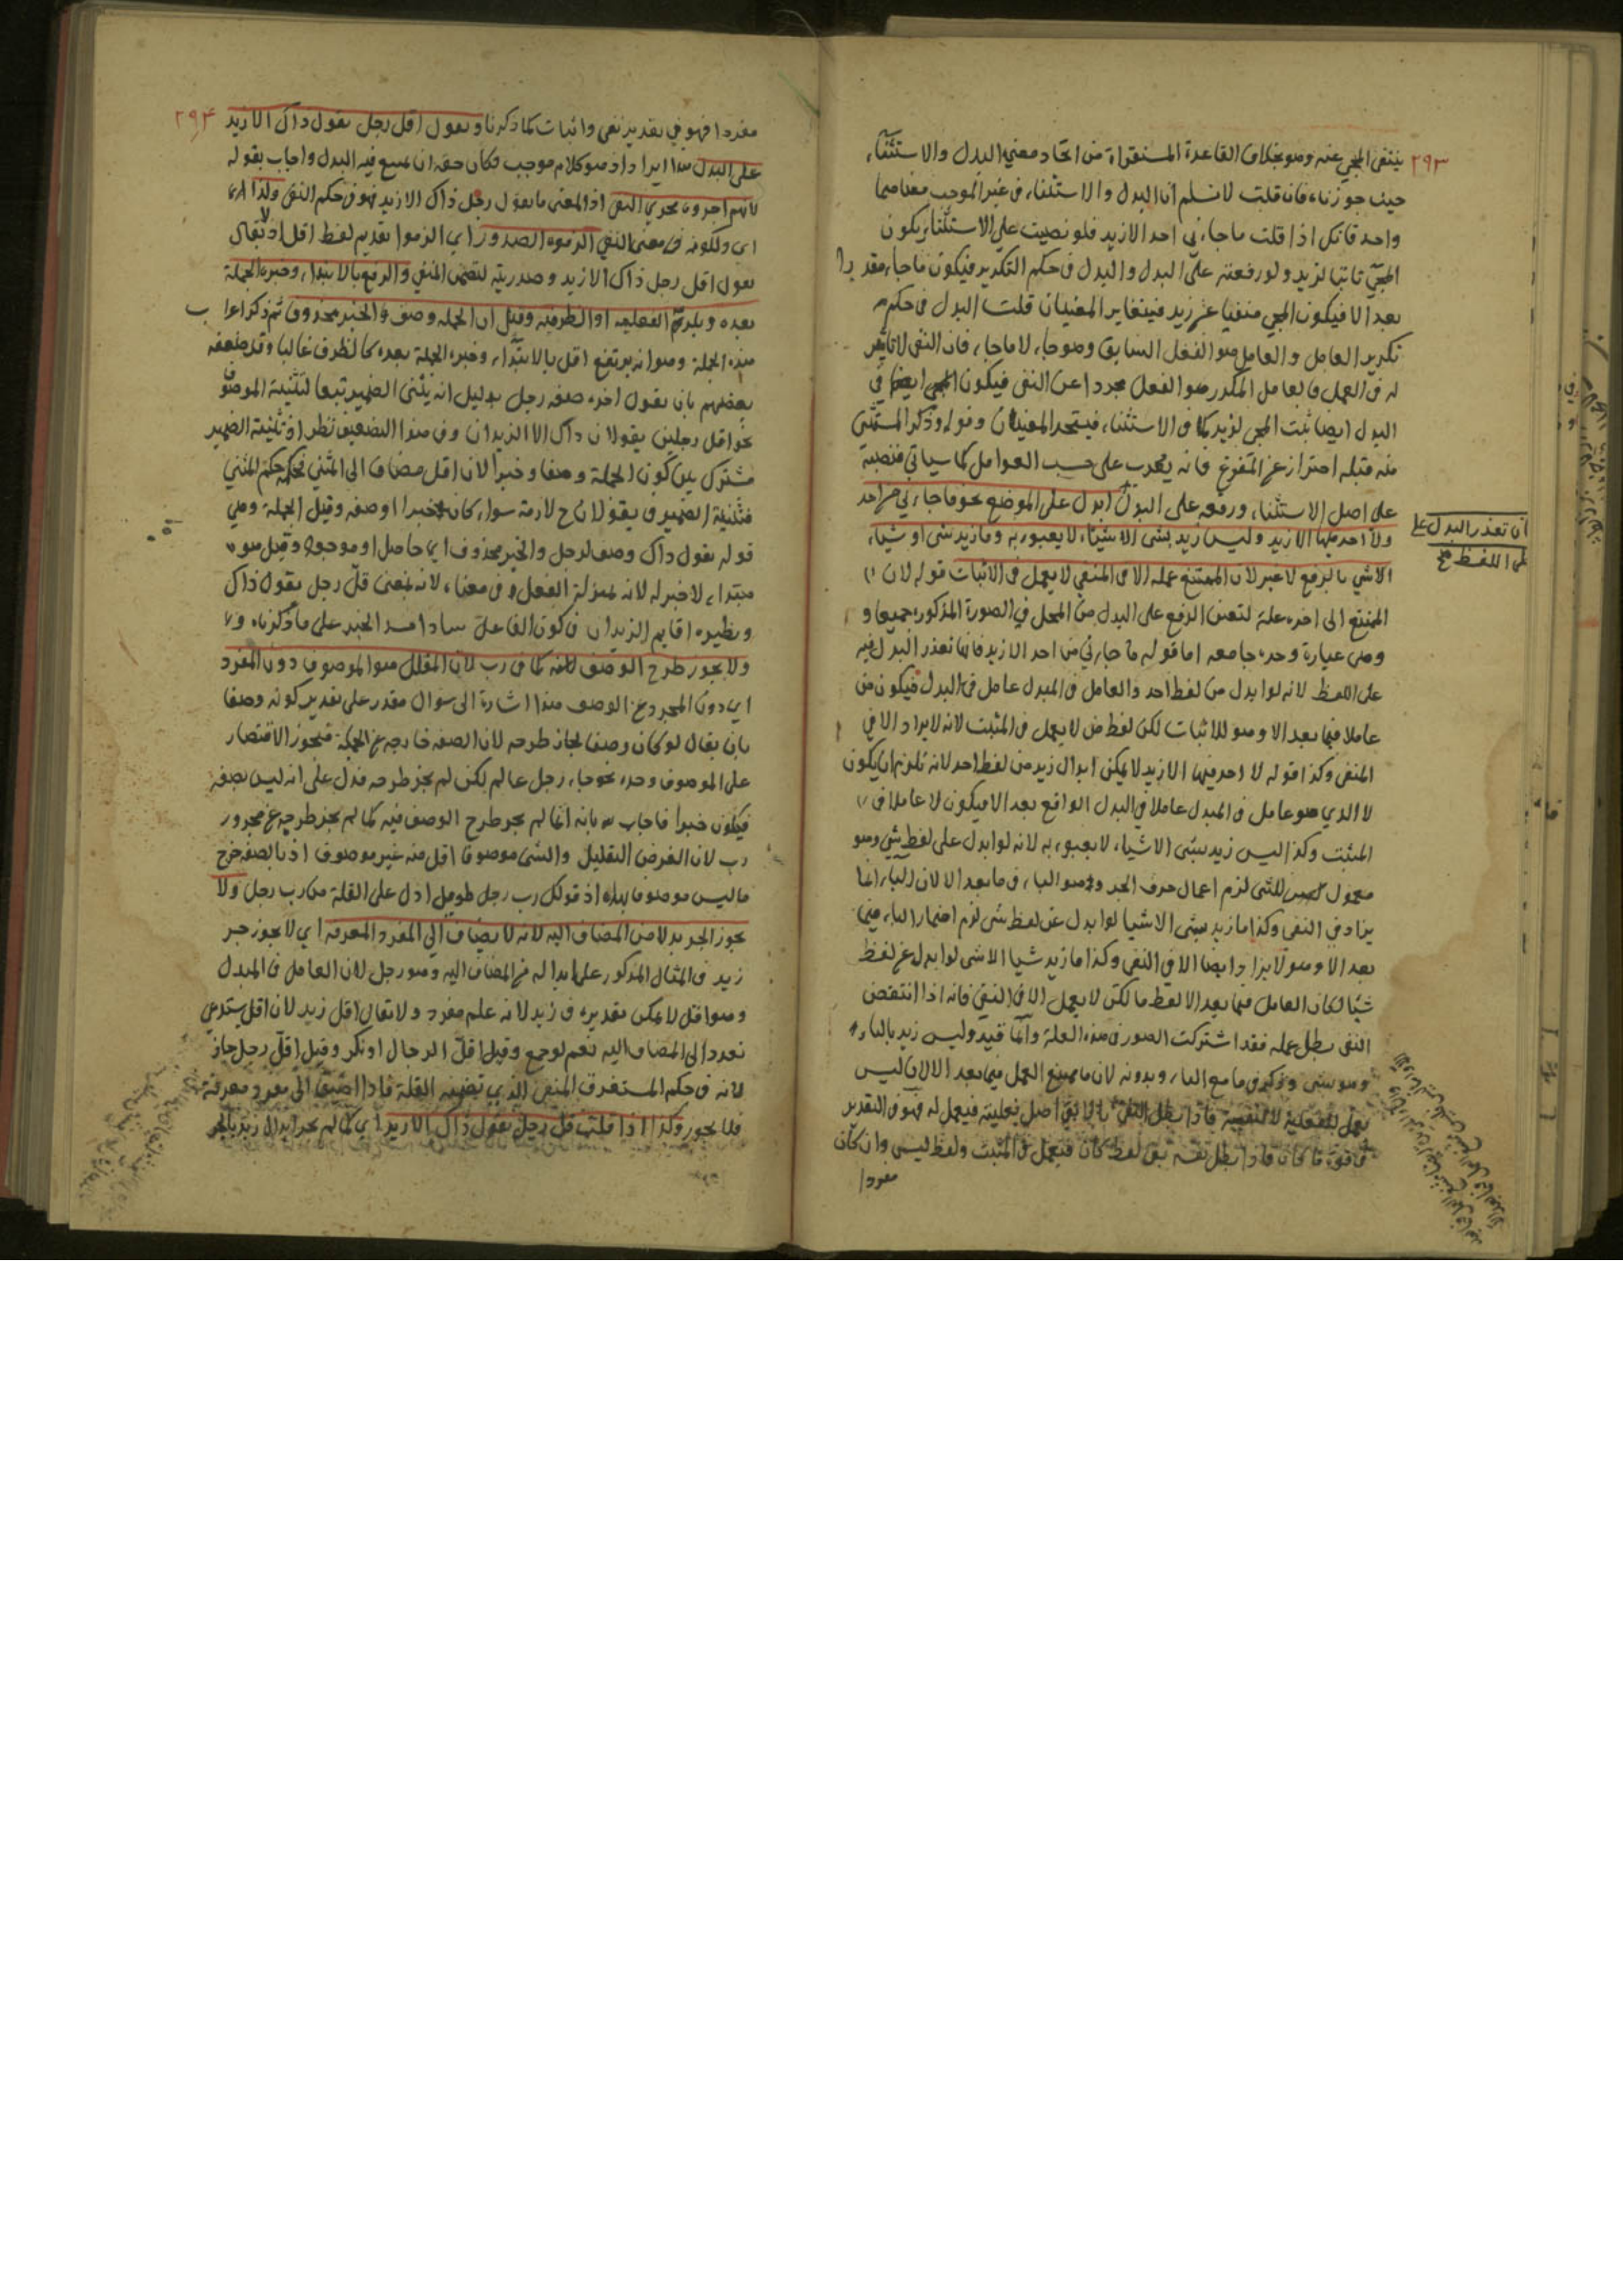 ٢٩٣
ينتفى المجي عنه وهو بخلاف القاعدة المستقراة من اتحاد معنى البدل والاستثناء
حيث جوزناه فان قلت لا نسلم ان البدل والاستثناء في غير الموجب معناهما
واحد فانكل اذا قلت ما جاءني احد الا زيد فلو نصبت على الاستثناء يكون
المجئ ثابتا لزيد ولو رفعته على البدل والبدل في حكم التكرير فيكون ما جاء مقدرا
بعد الا فيكون المجي منفيا عن زيد فيتغاير المعنيان قلت البدل في حكم
تكرير العامل والعامل هو الفعل السابق وهو جاء لا ما جاء فان النفى لا تاثير
له في العمل فالعامل المكرر هو الفعل مجردا عن النفى فيكون المجي ايضا في
البدل ايضا ثبت المجي لزيد كما في الاستثناء فيتحد المعنيان وقوله وذكر المستثنى
منه قبله احتراز عن المفرغ فانه يعرب على حسب العوامل كما سياتي فنصبه
على اصل الاستثناء ورفعه على البدل ابدل على الموضع نحو ما جاءني من احد
ولا احد فيها الا زيد وليس زيد بشى الا شيئا لا يعبوء به وما زيد شى او شيا
الا شي بالرفع لا غير لان الممتنع عمله الا في المنفي لا يعمل في الاثبات قوله لان
الممتنع الى اخره علة لتعين الرفع على البدل من المحل في الصورة المذكورة جميعا
وهى عبارة وحده جامعه اما قوله ما جاءني من احد الا زيد فانما تعذر البدل فيه
على اللفظ لانه لو ابدل من لفظ احد والعامل في المبدل عامل في البدل فيكون من
عاملا فيما بعد الا وهو للاثبات لكن لفظ من لا يعمل في المثبت لانه لا يزاد الا في
المنفى وكذا قوله لا احد فيها الا زيد لا يمكن ابدال زيد من لفظ احد لانه تلزم ان يكون
لا الذي هو عامل في المبدل عاملا في البدل الواقع بعد الا فيكون لا عاملا في
المثبت وكذا ليس زيد بشى الا شيئا لا يعبوء به لانه لو ابدل على لفظ شي وهو
معمول للشى لزم اعمال حرف الجر وهو الباء في ما بعد الا لان الباء انما
يزاد في النفى وكذا ما زيد بشى الا شيا لو ابدل عن لفظ شى لزم اضمار الباء فيما
بعد الا وهو لا يزاد ايضا الا في النفى وكذا ما زيد شيا الا شى لو ابدل عن لفظ
شيا لكان العامل فيما بعد الا لفظ ما لكن لا يعمل الا في النفى فانه اذا انتقض
النفى بطل عمله فقد اشتركت الصور في هذه العلة وانما قيد وليس زيد بالباء
وهو بشى وذكر في ما مع الباء وبدونه لان ما يمتنع العمل فيما بعد الا لان ليس
يعمل للفعلية لا للنفيية فاذا بطل النفى بالا بقى اصل فعلية فيعمل له فهو في التقدير
في قوة ما كان فاذا بطل نفيه بقى لفظ كان فيعمل في المثبت ولفظ ليس وان كان
مفردا
ان تعذر البدل على
على اللفظ صح
٢٩٤
مفردا فهو في تقدير نفى واثبات كما ذكرنا ويقول اقل رجل يقول ذاك الا زيد
على البدل هذا ايراد اذ هو كلام موجب فكان حقه ان يمتنع فيه البدل واجاب بقوله
لانهم اجروه مجرى النفى اذ المعنى ما يقول رجل ذاك الا زيد فهو في حكم النفى ولذا
اى ولكونه في معنى النفي الزموه الصدور اي الزموا تقديم لفظ اقل اذ لا يقال
يقول اقل رجل ذاك الا زيد وصدريته لتضمن النفي والرفع بالابتداء وخبره الجملة
بعده ويلزم الفعلية او الظرفية وقيل ان الجملة وصف والخبر محذوف ثم ذكر اعراب
هذه الجملة وهو انه يرتفع اقل بالابتداء وخبره الجملة بعده كالظرف غالبا وقد ضعفه
بعضهم بان يقول اخره صفة رجل بدليل انه يثنى الضمير تبعا لتثنية الموصوف
نحو اقل رجلين يقولان ذاك الا الزيدان وفي هذا التضعيف نظر اذ تثنية الضمير
مشترك بين كون الجملة وصفا وخبرا لان اقل مضاف الى المثنى فحكمه حكم المثنى
فتثنية الضمير في يقولان ح لازمة سواء كان خبرا او صفة وقيل الجملة وهي
قوله يقول ذاك وصف لرجل والخبر محذوف اي حاصل او موجود وقيل هو
مبتداء لا خبر له لانه بمنزلة الفعل وفي معناه لانه بمعنى قل رجل يقول ذاك
ونظيره اقايم الزيدان في كون الفاعل سادا مسد الخبر على ما ذكرناه
ولا يجوز طرح الوصف كما في رب لان المقلل هو الموصوف دون المفرد
اي دون المجرد عن الوصف هذا اشارة الى سوال مقدر على تقدير كونه وصفا
بان يقال لو كان وصفا لجاز طرحه لان الصفة خارجه عن الجملة فيجوز الاقتصار
على الموصوف وحده نحو جاء رجل عالم لكن لم يجز طرحه فدل على انه ليس بصفة
فيكون خبرا فاجاب بانه انما لم يجز طرح الوصف فيه كما لم يجز طرحه عن مجرور
رب لان الغرض التقليل والشى موصوفا اقل منه غير موصوف اذ بالصفة خرج
ما ليس موصوفا بهذه اذ قولك رب رجل طويل ادل على القلة من رب رجل ولا
يجوز الجر بدلا من المضاف اليه لانه لا يضاف الى المفرد المعرفة اي لا يجوز جر
زيد في المثال المذكور على ابداله من المضاف اليه وهو رجل لان العامل في المبدل
وهو اقل لا يمكن تقديره في زيد لانه علم مفرد ولا يقال اقل زيد لان اقل يستدعي
تعدد الى المضاف اليه نعم لو جمع وقيل اقل الرجال او نكر وقيل اقل رجل جاز
لانه في حكم المستغرق المنفى الذي تضمنه القلة فاذا اضيف الى مفرد معرفة
فلا يجوز وكذا اذا قلت قل رجل يقول ذاك الا زيد اي كما لم يجز ابدال زيد بالجر